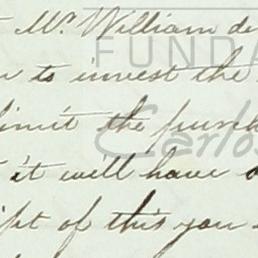 Mr William de
to invest the
limit the purch
it will have
ipt of this you
FUNDA
Carlos